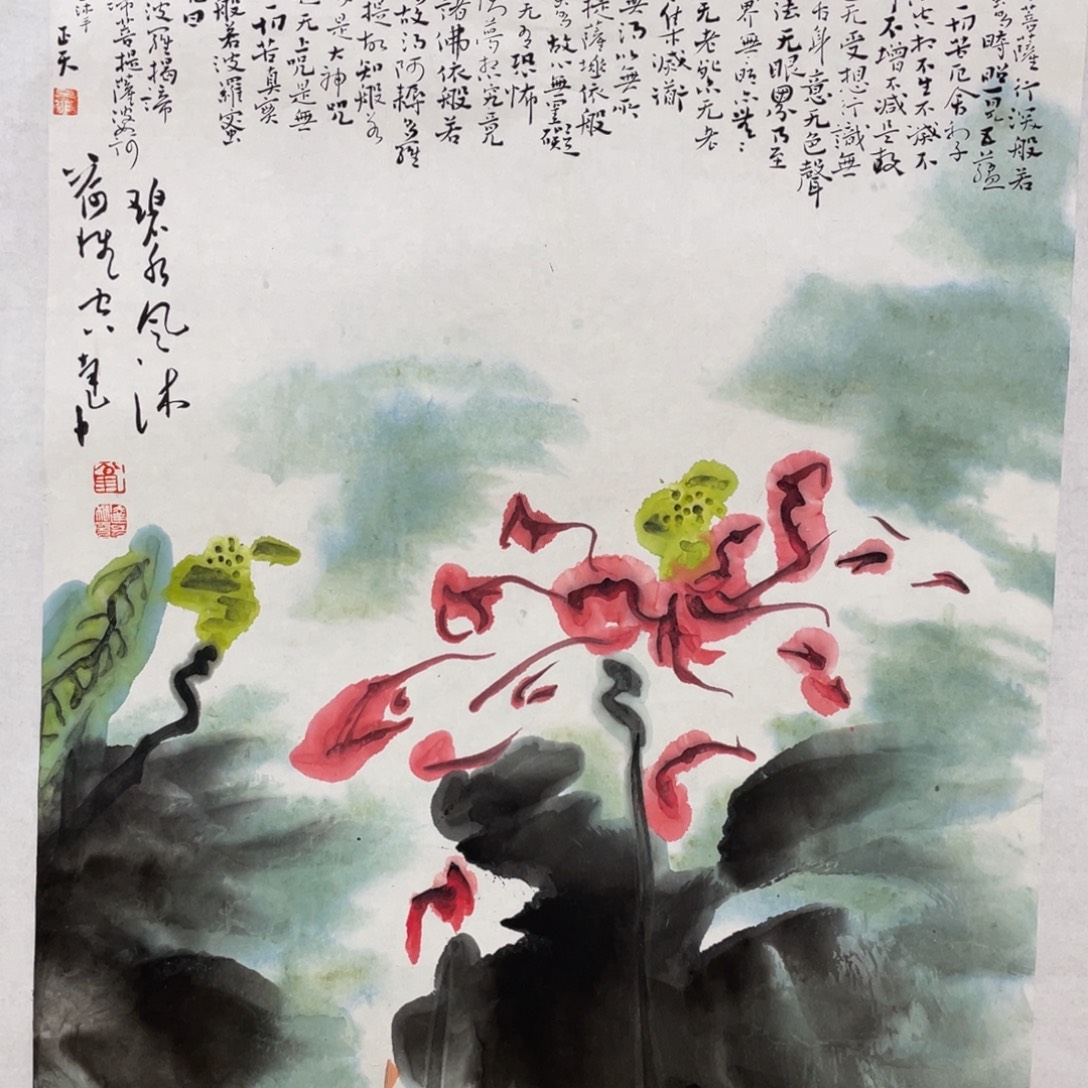 菩薩行深般若
多時照見五蘊
一切苦厄舍利子
法相不生不滅不
不增不減是故
无受想行識無
舌身意无色聲
法无眼界乃至
界無明亦
无老死亦无老
集滅道
無得以無所
提薩埵依般
多故心無罣礙
无有恐怖
夢想究竟
諸佛依般若
故得阿耨多羅
提故知般若
是大神咒
无上咒是無
一切苦真實
般若波羅蜜
曰
波羅揭諦
諦菩提薩婆訶
沐手
正天
碧水风沐
荷